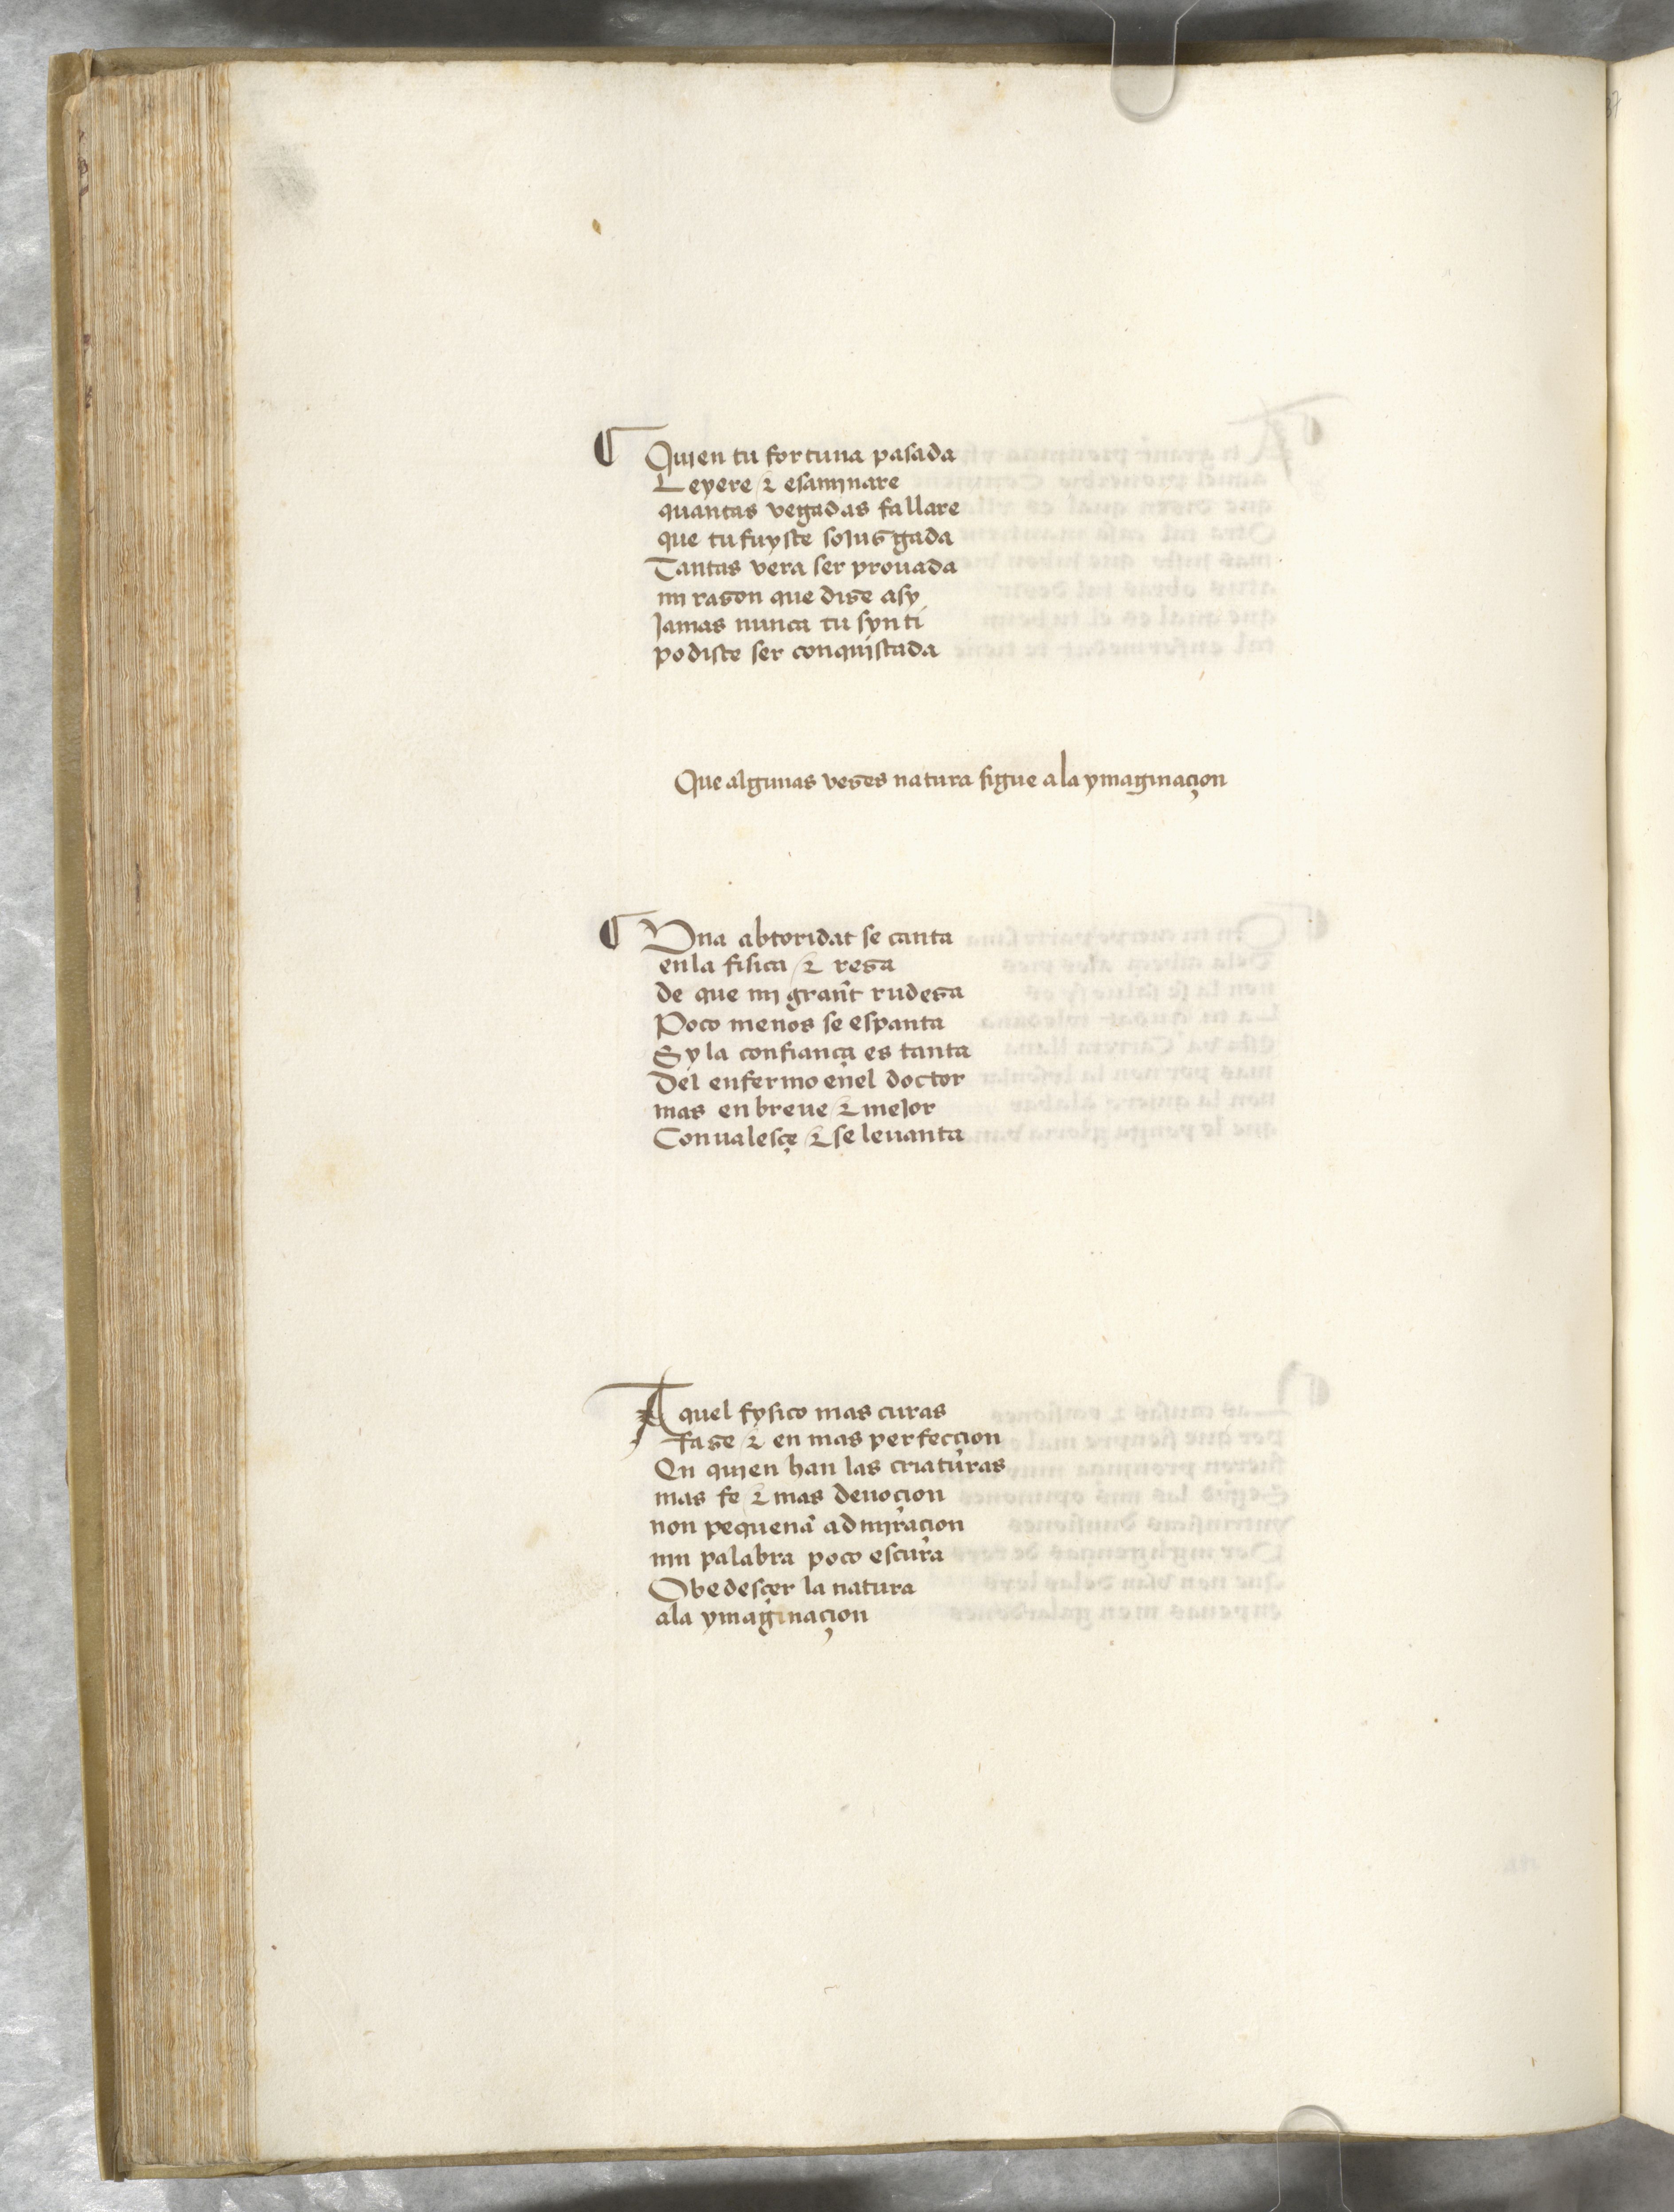 ¶ Quien tu fortuna pasada
Leyere & esaminare
quantas vegadas fallare
que tu fuyste sojuzgada
Tantas vera ser prouada
mi razon que dize asy
Jamas nunca tu syn ti
podiste ser conquistada
Que algunas vezes natura sigue a la ymaginaçion
¶ Vna abtoridat se canta
en la fisica & reza
de que mi grant rudeza
Poco menos se espanta
Sy la confiança es tanta
Del enfermo enel doctor
mas en breue & mejor
Conualesçe & se leuanta
Aquel fysico mas curas
faze & en mas perfecçion
En quien han las criaturas
mas fe & mas deuoçion
non pequena admiraçion
nin palabra poco escura
Obedesçer la natura
ala ymaginaçion